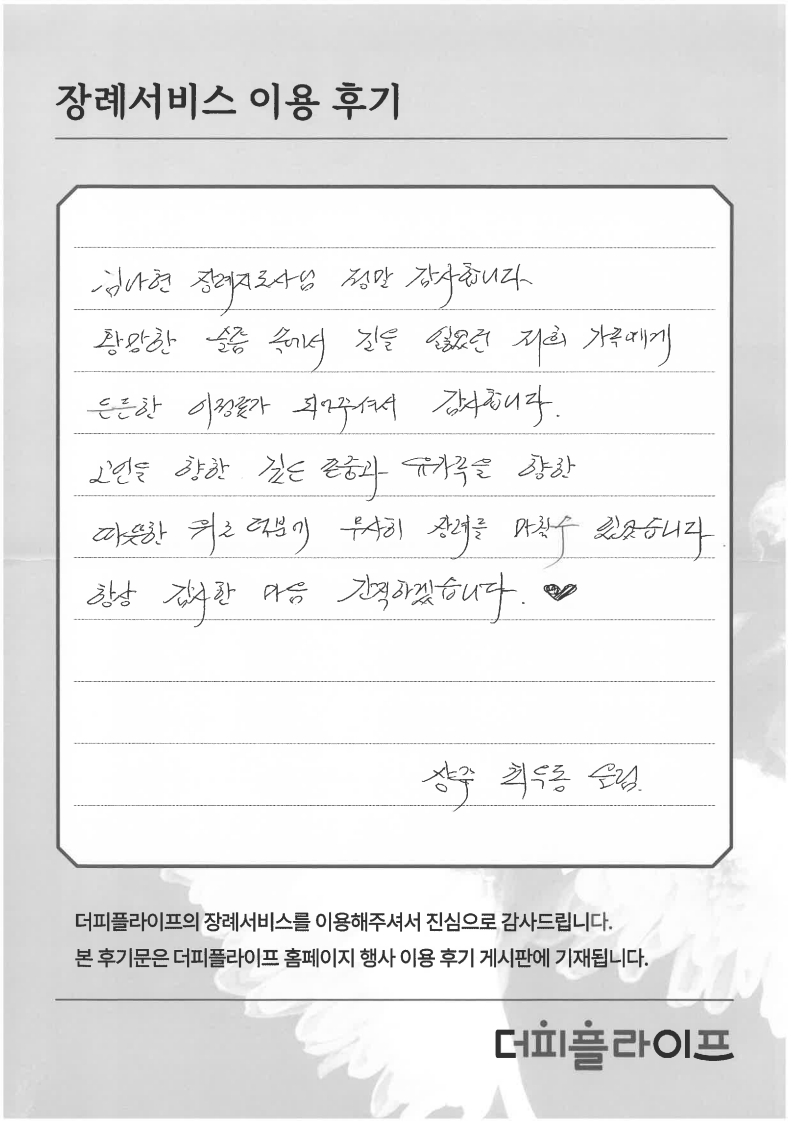 장례서비스 이용 후기
김나현 장례지도사님 정말 감사합니다
황망한 슬픔 속에서 길을 잃었던 저희 가족에게
든든한 이정표가 되어주셔서 감사합니다.
고인을 향한 깊은 존중과 유가족을 향한
따뜻한 위로 덕분에 무사히 장례를 마칠수 있었습니다.
항상 감사한 마음 간직하겠습니다. ♥
상주 최우동 올림.
더피플라이프의 장례서비스를 이용해주셔서 진심으로 감사드립니다.
본 후기문은 더피플라이프 홈페이지 행사 이용 후기 게시판에 기재됩니다.
더피플라이프